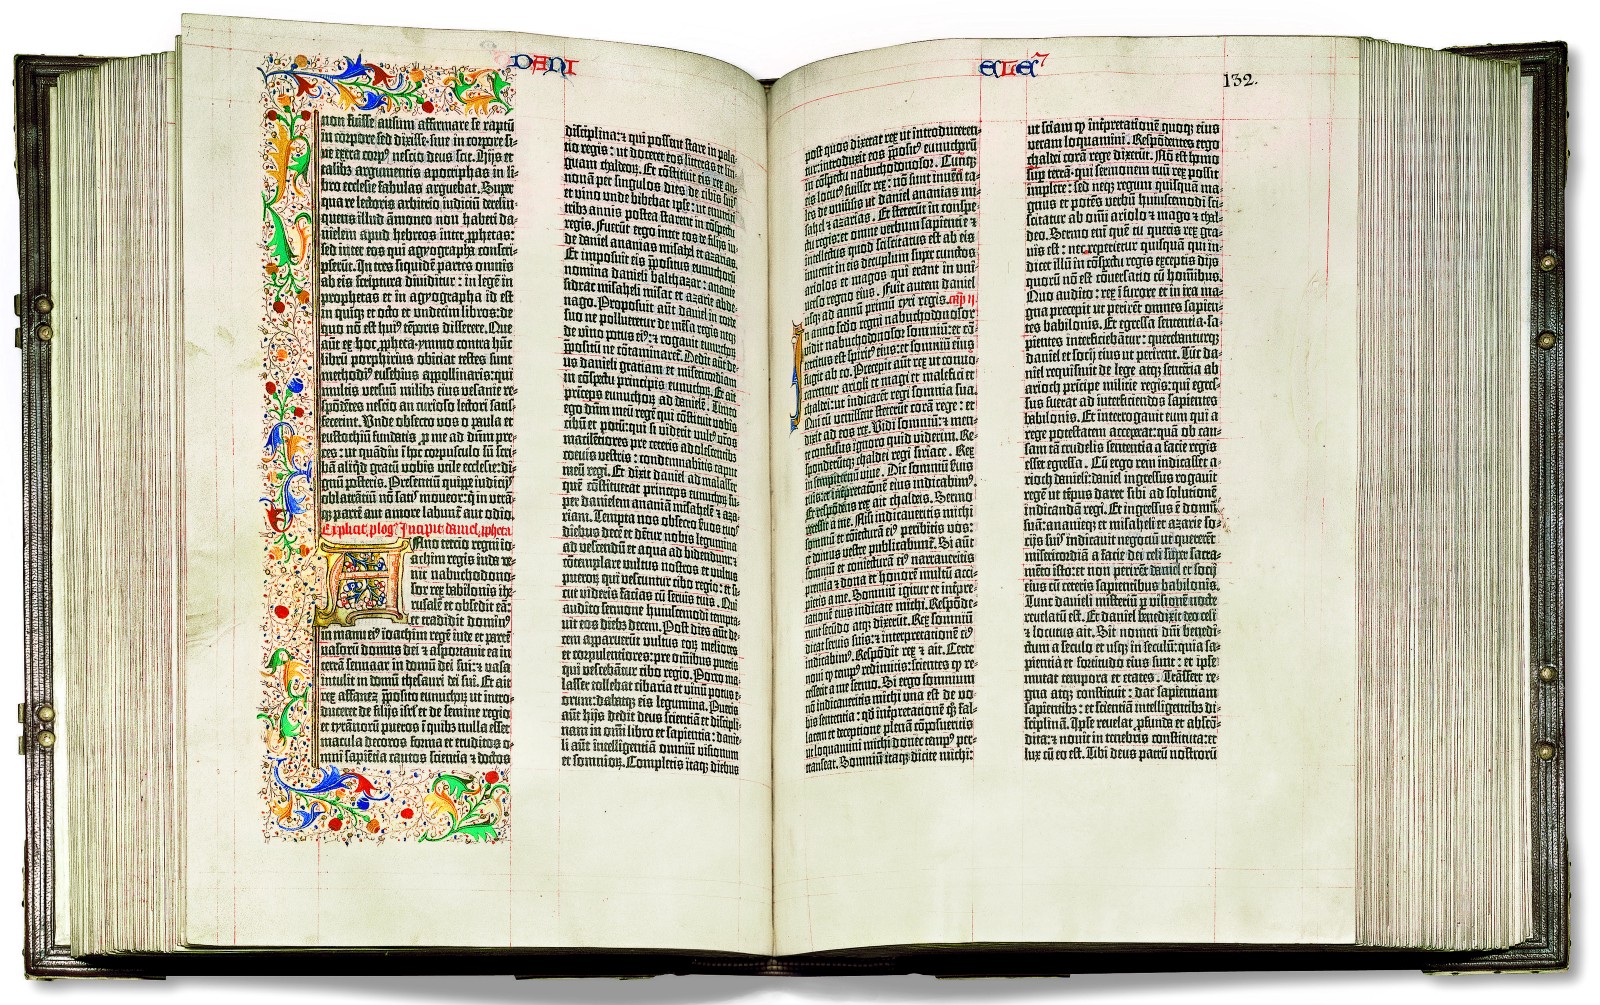 DANI
non fuisse ausum affirmare se raptū
in corpore sed dixisse·sive in corpore si-
ve extra corpꝰ nescio deus scit. Hijs et
talibꝫ argumentis apocriphas in li-
bro ecclesie fabulas arguebat. Super
qua re lectoris arbitrio iudiciū derelin-
quens illud āmoneo non haberi da-
nielem apud hebreos inter ꝓphetas:
sed inter eos qui agyographa conscri-
pserūt. In tres siquidē partes omnis
ab eis scriptura dividitur : in legē in
prophetas et in agyographa id est
in quīqꝫ et octo et undecim libros: de
quo nō est huiꝰ tēporis disserere. Que
aūt ex hoc ꝓpheta·ymmo contra hūc
librū porphirius obiciat testes sunt
methodiꝰ eusebius appollinaris: qui
multis versuū milibꝫ eius vesanie re-
spōdētes nescio an curioso lectori satis-
fecerint. Unde obsecro vos o paula et
eustochiū fundatis ꝓ me ad dūm pre-
ces : ut quādiu ī hoc corpusculo sū scri-
bā aliqd gratū vobis utile ecclesie: di-
gnū posteris. Presentiū quippe iudicijs
oblatrātiū nō satis moveor: q̄ in utrā-
qꝫ partē aut amore labunt̄ aut odio.
Explicit ꝓlogꝰ Incipit daniel ꝓpheta
Anno tercio regni io-
achim regis iuda ve-
nit nabuchodono-
sor rex babilonis ihe-
rusalē et obsedit eā:
et tradidit dominꝰ
in manu eiꝰ ioachim regē iude et partē
vasorū domus dei ⁊ asportavit ea in
terrā sennaar in domū dei sui: ⁊ vasa
intulit in domū thesauri dei sui. Et ait
rex affanez p̄posito eunuchoꝝ ut intro-
duceret de filijs isrl̄ et de semine regio
et tyrānorū pueros ī quibꝫ nulla esset
macula decoros forma et eruditos o-
mni sapiētia cautos scientia ⁊ doctos
disciplina:⁊ qui possent stare in pala-
tio regis: ut doceret eos litteras et lin-
guam chaldeoꝝ. Et cōstituit eis rex an-
nonā per singulos dies de cibis suis
et vino unde bibebat ipse: ut enutriti
tribꝫ annis postea starent in cōspectu
regis. Fuerūt ergo inter eos de filijs iu-
de daniel ananias misahel et azarias.
Et imposuit eis p̄positus eunuchorū
nomina danieli balthazar: ananie
sidrac misaheli misac et azarie abde-
nago. Proposuit aūt daniel in corde
suo ne pollueretur de mēsa regis neqꝫ
de vino potus eiꝰ: ⁊ rogavit eunuchoꝝ
p̄positū ne cōtaminaret̄. Dedit aūt de-
us danieli gratiam et misericordiam
in cōspectu principis eunuchoꝝ. Et ait
princeps eunuchoꝝ ad danielē. Timeo
ego dnm̄ meū regē qui cōstituit vobis
cibū et potū: q̄ si viderit vultꝰ vr̄os
macilētiores pre ceteris adolescētibꝫ
coevis vestris : condemnabitis caput
meū regi. Et dixit daniel ad malasar
quē cōstituerat princeps eunuchoꝝ su-
per danielem ananiā misahelē ⁊ aza-
riam. Tempta nos obsecro ẜvos tuos
diebus decē et dētur nobis legumina
ad vescendū et aqua ad bibendum: ⁊
cōtemplare vultus nostros et vultus
pueroꝝ qui vescuntur cibo regio: et si-
cut videris facias cū servis tuis. Qui
audito sermone huiuscemodi tempta-
vit eos diebꝫ decem. Post dies aūt de-
cem apparuerūt vultus eorū meliores
et corpulentiores: pre omnibus pueris
qui vescebātur cibo regio. Porro ma-
lasar tollebat cibaria et vinū potus e-
orum: dabatqꝫ eis legumina. Pueris
aūt hijs dedit deus scientiā et discipli-
nam in omī libro et sapientia: danie-
li aūt intelligentiā omniū visionum
et somnioꝝ. Completis itaqꝫ diebus
ELEꝰ
132.
post quos dixerat rex ut introduceren-
tur: introduxit eos p̄positꝰ eunuchorū
in cōspectu nabuchodonosor. Cumqꝫ
eis locutꝰ fuisset rex: nō sunt inventi ta-
les de universis ut daniel ananias mi-
sahel ⁊ azarias. Et steterūt in conspe-
ctu regis: et omne verbum sapientie ⁊
intellectus quod sciscitatus est ab eis
invenit in eis decuplum supra cunctos
ariolos et magos qui erant in uni-
verso regno eius. Fuit autem daniel
usqꝫ ad annū primū cyri regis. Cap̄ II
In anno secūdo regni nabuchodonosor
vidit nabuchodonosor somniū: et cō-
territus est spiritꝰ eius: et somniū eius
fugit ab eo. Precepit aūt rex ut convo-
carentur arioli et magi et malefici et
chaldei: ut indicarēt regi somnia sua.
Qui cū venissent steterūt corā rege : et
dixit ad eos rex. Vidi somniū: ⁊ men-
te confusus ignoro quid viderim. Re-
sponderūtqꝫ chaldei regi siriace . Rex
in sempiternū vive. Dic somniū ẜvis
tuis: et interpretationē eius indicabimꝰ.
Et respōdens rex ait chaldeis. Sermo
recessit a me. Nisi indicaveritis michi
somniū ⁊ cōiecturā eiꝰ peribitis vos:
et domus vestre publicabunt̄. Si aūt
somniū et coniecturā eiꝰ narraveritis
premia ⁊ dona et honorē multū acci-
pietis a me. Somniū igitur et interpre-
tationē eius indicate michi. Respōde-
runt secūdo atqꝫ dixerūt. Rex somniū
dicat servis suis: ⁊ interpretationē eiꝰ
indicabimꝰ. Respōdit rex ⁊ ait. Certe
novi qꝫ tempꝰ redimitis: scientes qꝫ re-
cesserit a me sermo. Si ergo somnium
nō indicaveritis michi una est de vo-
bis sententia : qd̄ interpretationē qꝫ fal-
lacem et deceptione plenā cōposueritis
ut loquamini michi donec tempꝰ per-
transeat. Somniū itaqꝫ dicite michi:
ut sciam qꝫ interpretationē quoqꝫ eius
veram loquamini. Respōdentes ergo
chaldei corā rege dixerūt. Nō est homo
sup̄ terrā: qui sermonem tuū rex possit
implere : sed neqꝫ regum quisquā ma-
gnus et potēs verbū huiuscemodi sci-
scitatur ab omī ariolo ⁊ mago ⁊ chal-
deo. Sermo enī quē tu queris rex gra-
vis est : nec reperietur quisquā qui in-
dicet illū in cōspectu regis exceptis dijs
quorū nō est cōversatio cū hominibꝫ.
Quo audito : rex ī furore et in ira ma-
gna precepit ut perirēt omnes sapien-
tes babilonis. Et egressa sententia·sa-
pientes interficiebātur : querebanturqꝫ
daniel et socij eius ut perirent. Tūc da-
niel requisivit de lege atqꝫ sentētia ab
arioch principe militie regis: qui egres-
sus fuerat ad interficiendos sapientes
babilonis. Et interrogavit eum qui a
rege potestatem acceperat: quā ob cau-
sam tā crudelis sentētia a facie regis
esset egressa . Cū ergo rem indicasset a-
rioch danieli: daniel ingressus rogavit
regē ut tēpus daret sibi ad solutionē
indicandā regi. Et ingressus ē domū
suā: ananieqꝫ et misaheli et azarie so-
cijs suis indicavit negociū ut quererēt
misericordiā a facie dei celi super sacra-
mēto isto: et non perirēt daniel et socij
eius cū ceteris sapientibus babilonis.
Tunc danieli misteriū p visionē nocte
revelatū est. Et daniel benedixit deo celi
⁊ locutus ait. Sit nomen dn̄i benedi-
ctum a seculo et usqꝫ in seculū: quia sa-
pientia et fortitudo eius sunt : et ipse
mutat tempora et etates . Transfert re-
gna atqꝫ constituit : dat sapientiam
sapientibꝫ : et scientiā intelligentibꝫ di-
sciplinā. Ipse revelat ꝓfunda et abscō-
dita: ⁊ novit in tenebris constituta: et
lux cū eo est. Tibi deus patrū nostrorū